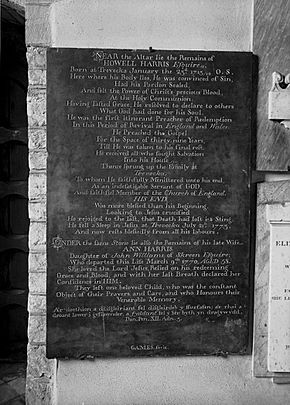 NEAR the Altar lie the Remains of
HOWELL HARRIS Esquire,
Born at Trevecka January the 23d. 1713/14 O.S.
Here where his Body lies, He was convinced of Sin,
Had his Pardon Sealed,
And felt the Power of Christ's precious Blood,
At the Holy Communion.
Having Tasted Grace, He resolved to declare to others
What God had done for his Soul.
He was the first itinerant Preacher of Redemption
In this Period of Revival in England and Wales.
He Preached the Gospel
For the Space of thirty-nine Years,
Till He was taken to his final rest.
He received all who sought Salvation
Into his House.
Thence sprung up the Family at
Trevecka,
To whom He faithfully Ministered unto his end,
As an indefatigable Servant of GOD,
And faithful Member of the Church of England.
HIS END
Was more blessed than his Beginning.
Looking to Jesus crucified
He rejoiced to the last, that Death had lost its Sting.
He fell a Sleep in Jesus at Trevecka July 21st. 1773,
And now rests blessedly from all his Labours.
UNDER the same Stone lie also the Remains of his late Wife,
ANN HARRIS
Daughter of John Williams of Skreen Esquire,
Who departed this Life March 9th. 1770, AGED 58.
She loved the Lord Jesus, Relied on his redeeming
Grace and Blood, and with her last Breath declared her
Confidence in HIM.
They left one beloved Child, who was the constant
Object of their Prayers and Care, and who Honours their
Venerable Memory.
Dan. Pen. XII. Adn. 3.
GAMES, fecit.